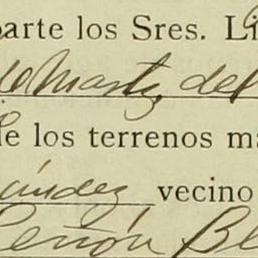 parte los Sres. Li
lo Martz, del
e los terrenos ma
ández vecino
Peñón Bl